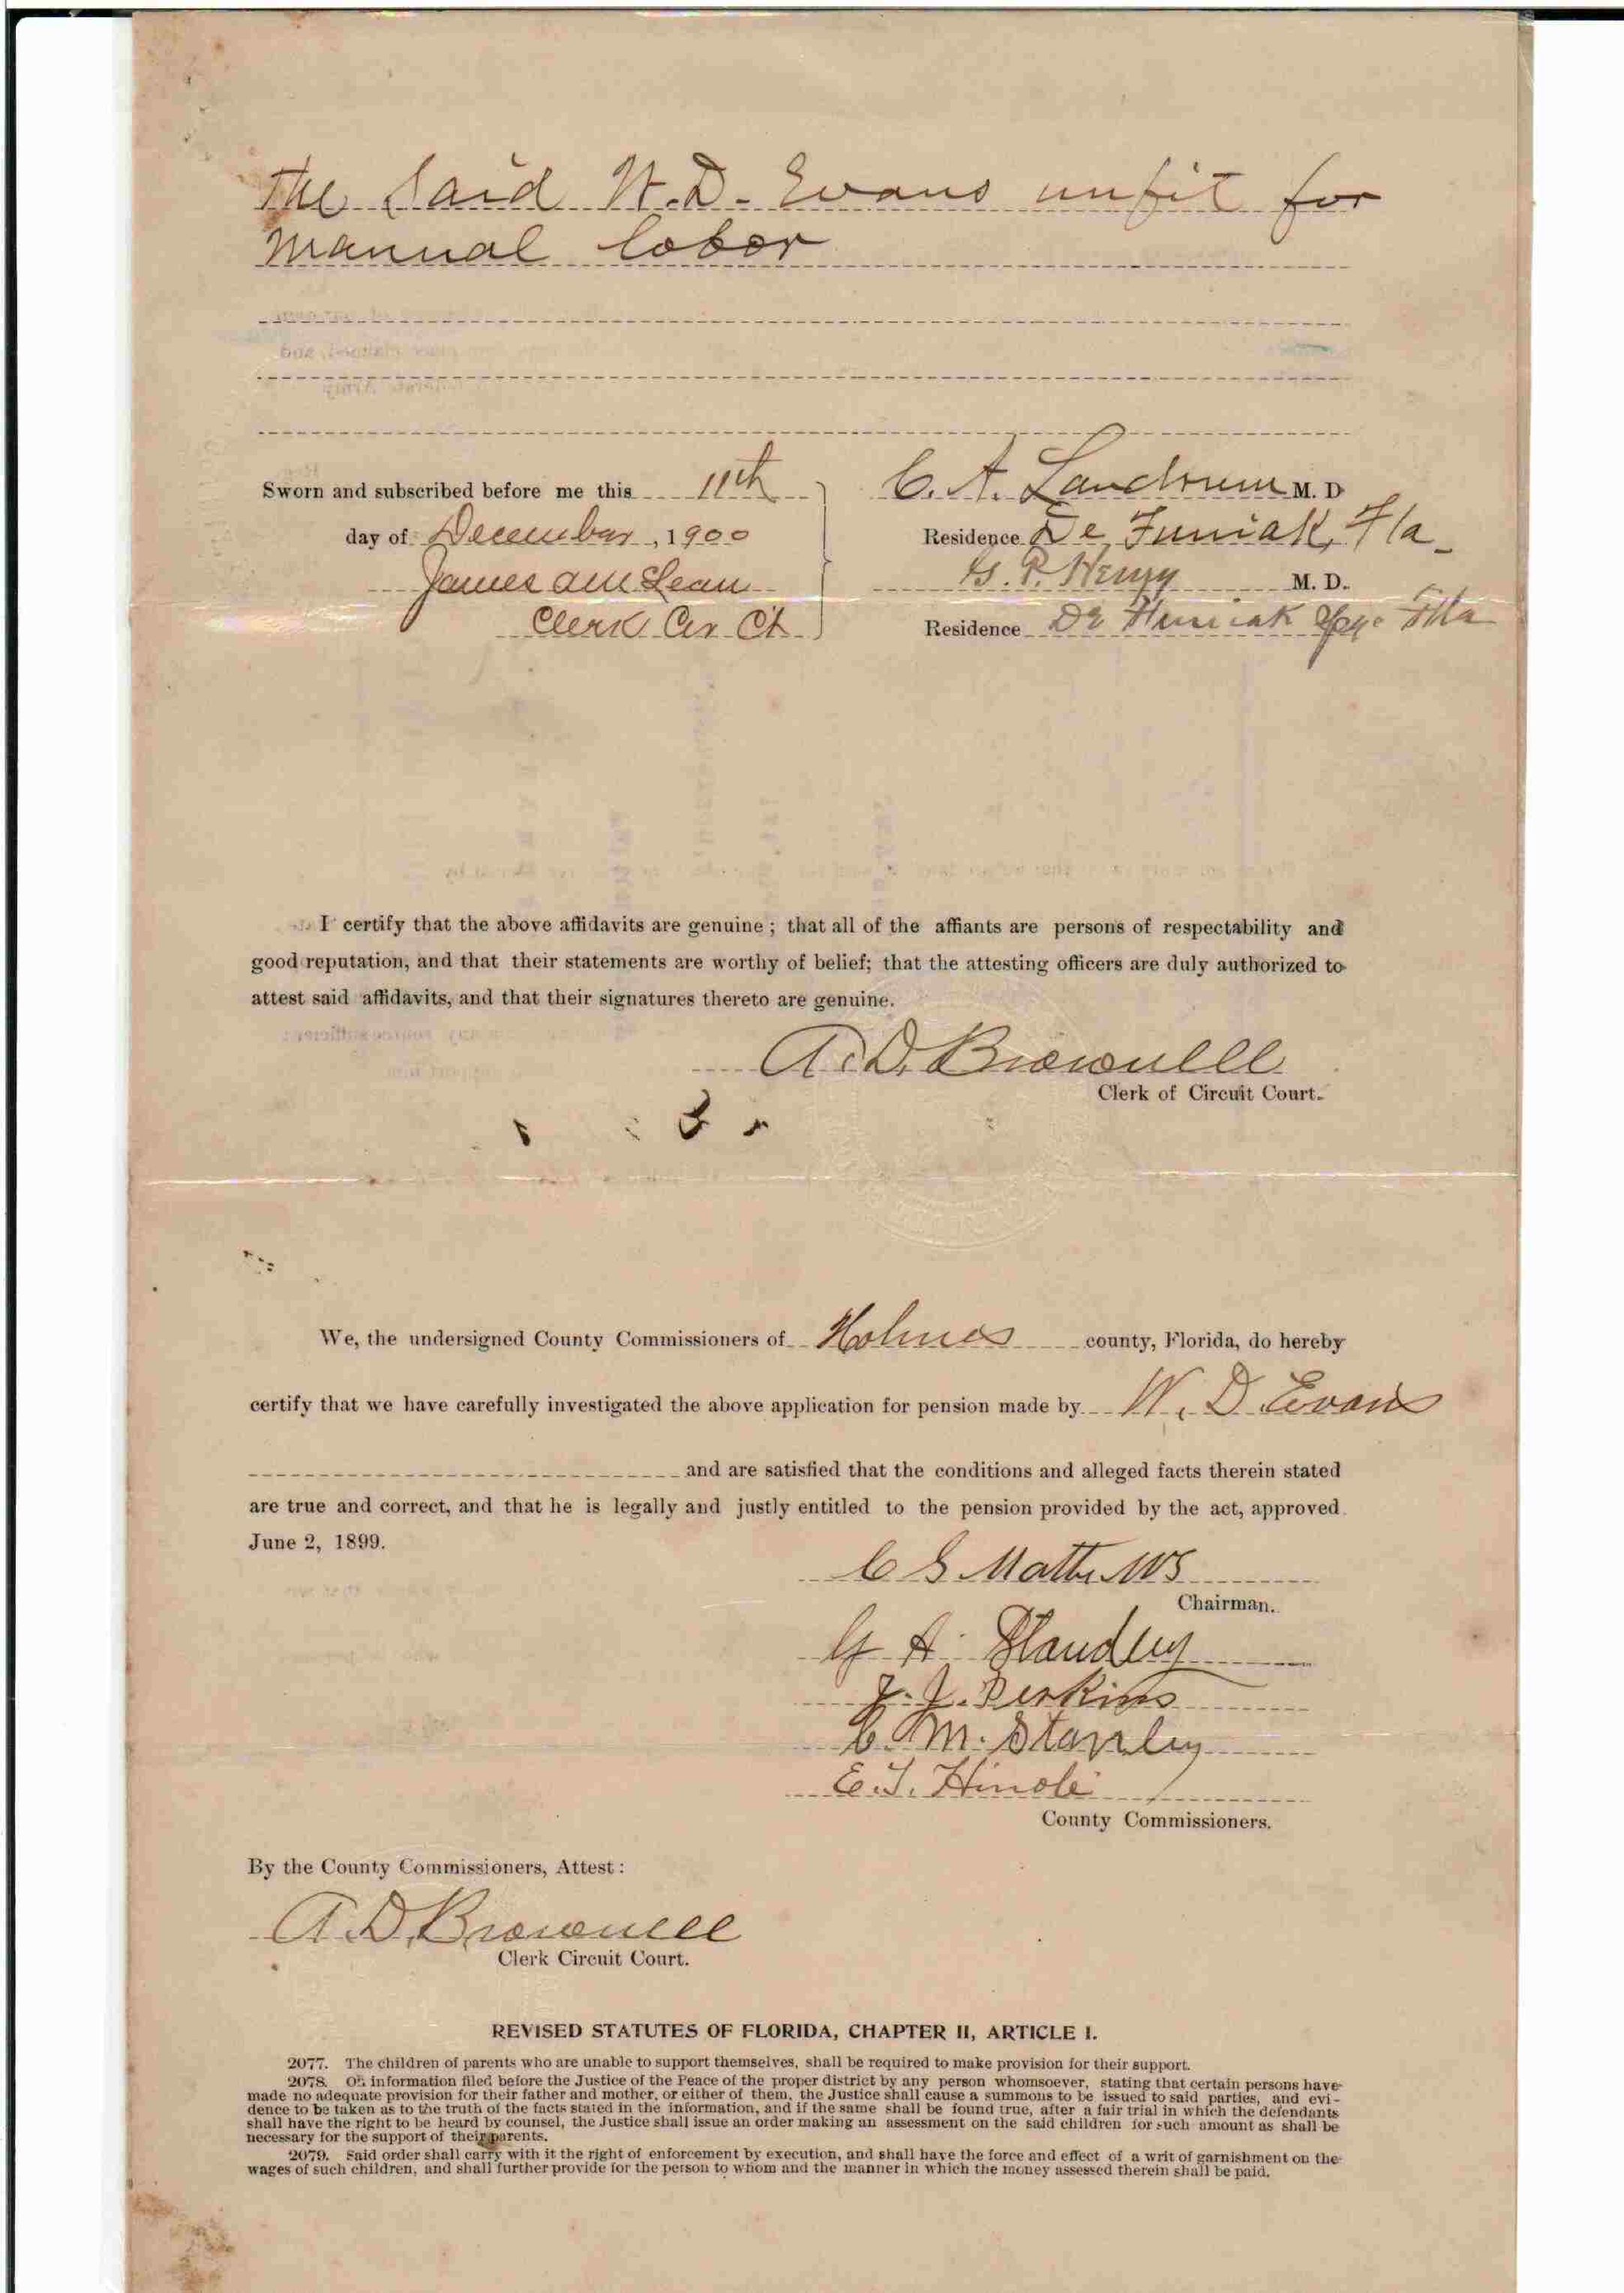 The Said W.D. Evans unfit for
manual labor
Sworn and subscribed before me this 11th
day of December, 1900
James McLean
Clerk Cir Ct
C. A. Landrum M. D
Residence De Funiak, Fla
G. P. Henry M. D.
Residence De Funiak Spgs Fla
I certify that the above affidavits are genuine; that all of the affiants are persons of respectability and
good reputation, and that their statements are worthy of belief; that the attesting officers are duly authorized to
attest said affidavits, and that their signatures thereto are genuine.
A. D. Brownell
Clerk of Circuit Court.
We, the undersigned County Commissioners of Holmes county, Florida, do hereby
certify that we have carefully investigated the above application for pension made by W. D Evans
and are satisfied that the conditions and alleged facts therein stated
are true and correct, and that he is legally and justly entitled to the pension provided by the act, approved
June 2, 1899.
C S Matthews
Chairman.
G A Standley
J. J. Perkins
C. M. Stanley
E. T. Hinole
County Commissioners.
By the County Commissioners, Attest:
A. D. Brownell
Clerk Circuit Court.
REVISED STATUTES OF FLORIDA, CHAPTER II, ARTICLE I.
2077. The children of parents who are unable to support themselves, shall be required to make provision for their support.
2078. On information filed before the Justice of the Peace of the proper district by any person whomsoever, stating that certain persons have
made no adequate provision for their father and mother, or either of them, the Justice shall cause a summons to be issued to said parties, and evi-
dence to be taken as to the truth of the facts stated in the information, and if the same shall be found true, after a fair trial in which the defendants
shall have the right to be heard by counsel, the Justice shall issue an order making an assessment on the said children for such amount as shall be
necessary for the support of their parents.
2079. Said order shall carry with it the right of enforcement by execution, and shall have the force and effect of a writ of garnishment on the
wages of such children, and shall further provide for the person to whom and the manner in which the money assessed therein shall be paid.